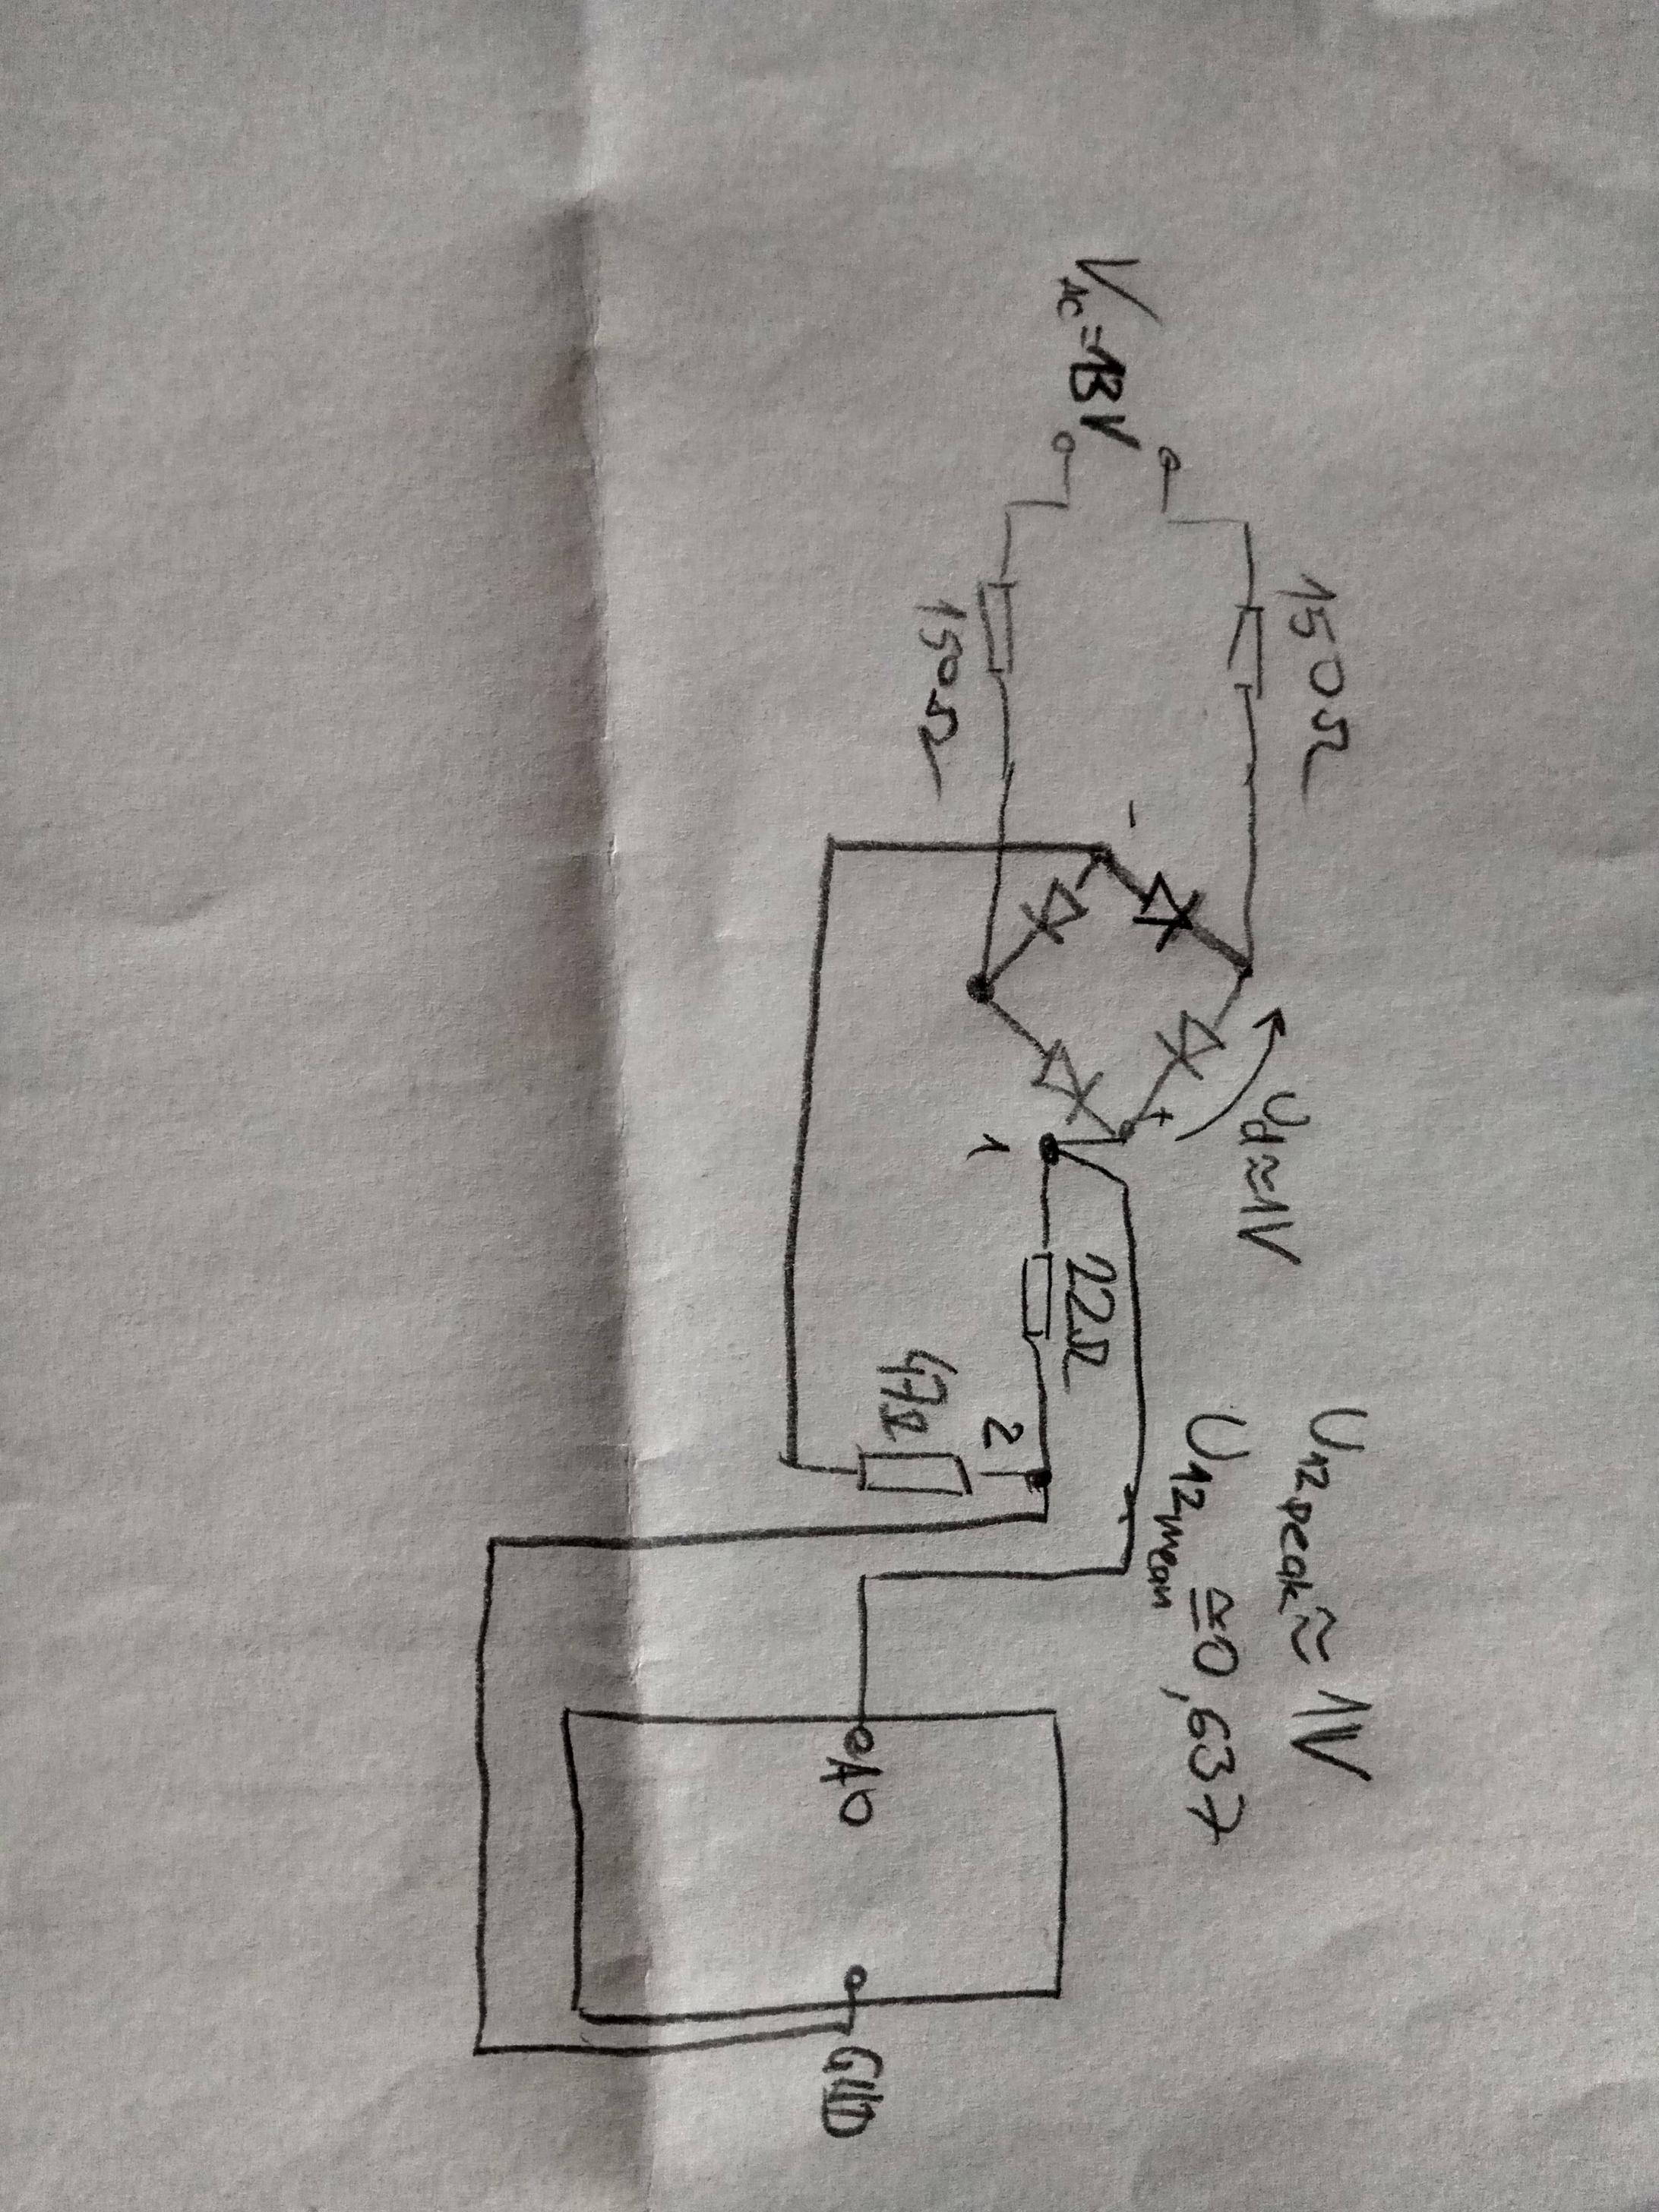 150Ω
V_AC=13V
150Ω
-
+
U_d≈1V
1
22Ω
2
47Ω
U_12peak≈1V
U_12mean≅0,637
A0
GND